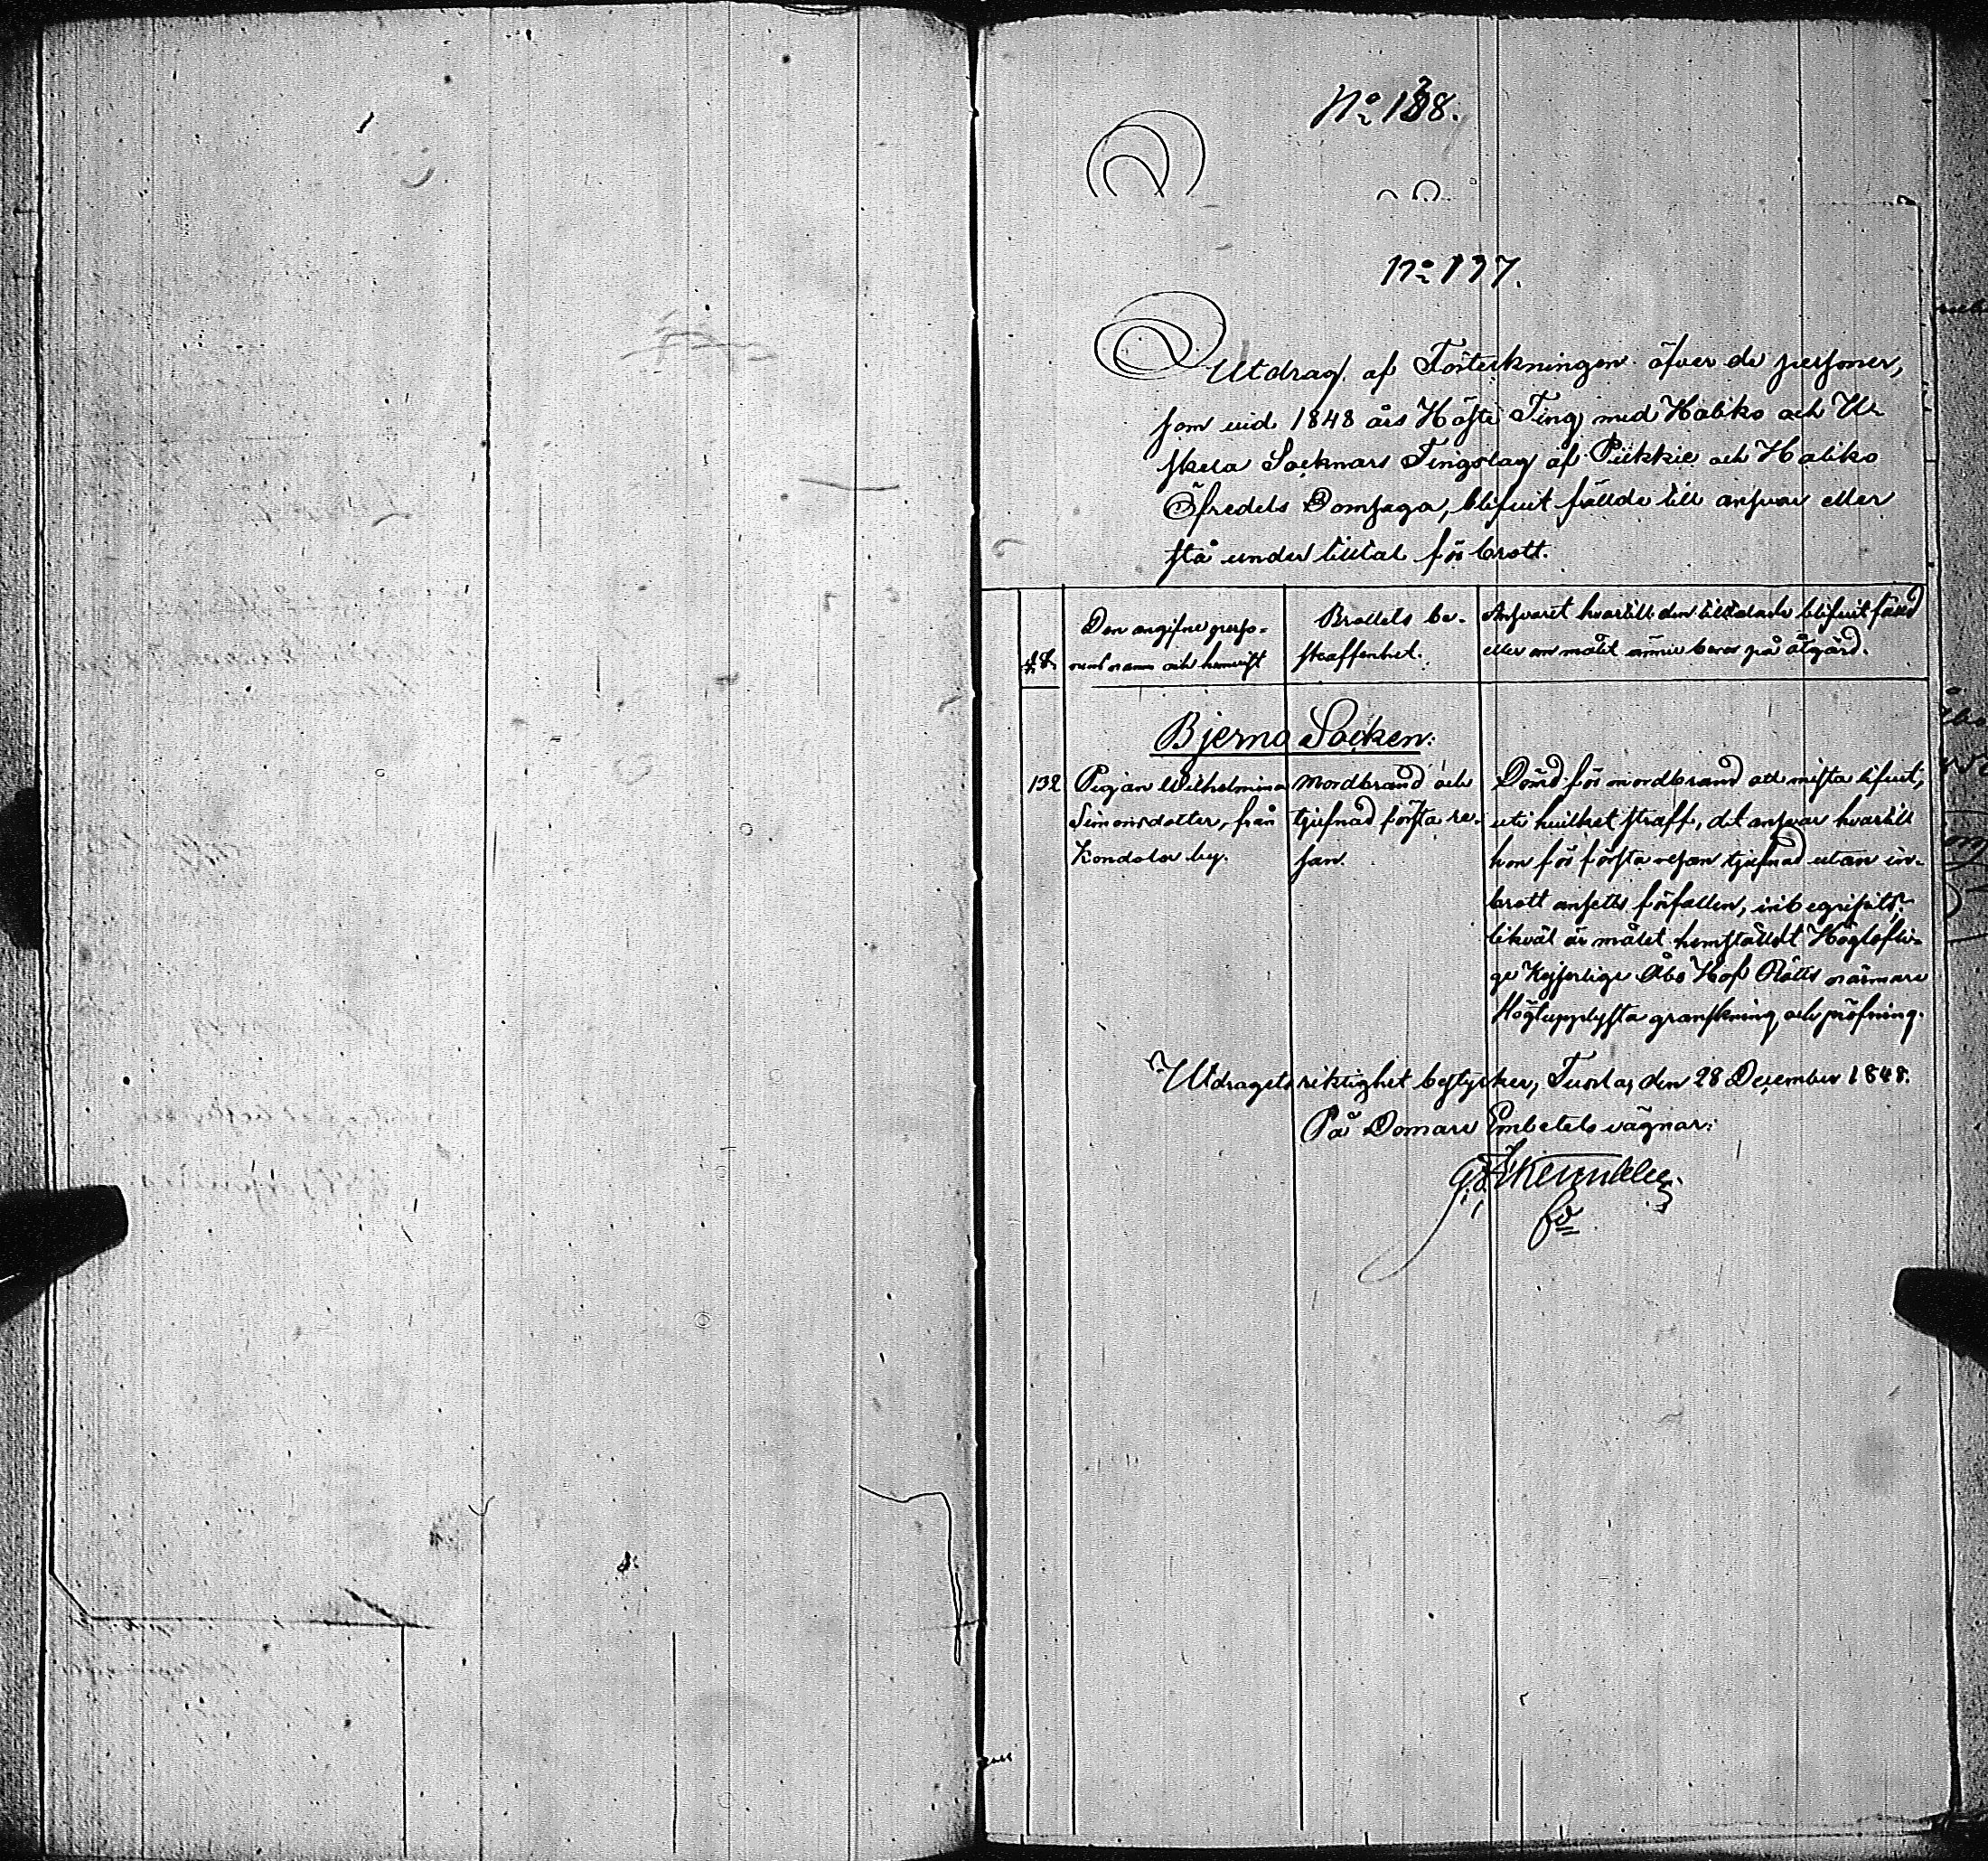 No 188.
No 177.
Utdrag af Förteckningen öfver de personer,
som vid 1848 års Höste Ting med Haliko och U-
skela Socknars Tingslag af Piikkie och Haliko
Öfredels Domsaga, blifvit fällde till ansvar eller
stå under tilltal för brott.
Den angifne perso-
nens namn och hemvist
Brottets be-
skaffenhet.
Ansvaret hvartill den tilltalade blifvit fälld
eller om målet ännu beror på åtgärd.
Bjerno Socken:
132
Pigan Wilhelmina
Simonsdotter, från
Kondola by.
Mordbrand och
tjufnad första re-
san.
Dömd för mordbrand att mista lifvet,
uti hvilket straff, det ansvar hvartill
hon för första resan tjufnad utan in-
brott ansetts förfallen, inbegripits;
likväl är målet hemställdt Höglofli-
ge Kejserlige Åbo Hof Rätts närmare
Högtupplysta granskning och pröfning.
Utdragets riktighet bestyrker, Tuorla, den 28 December 1848.
På Domare Embetets vägnar: